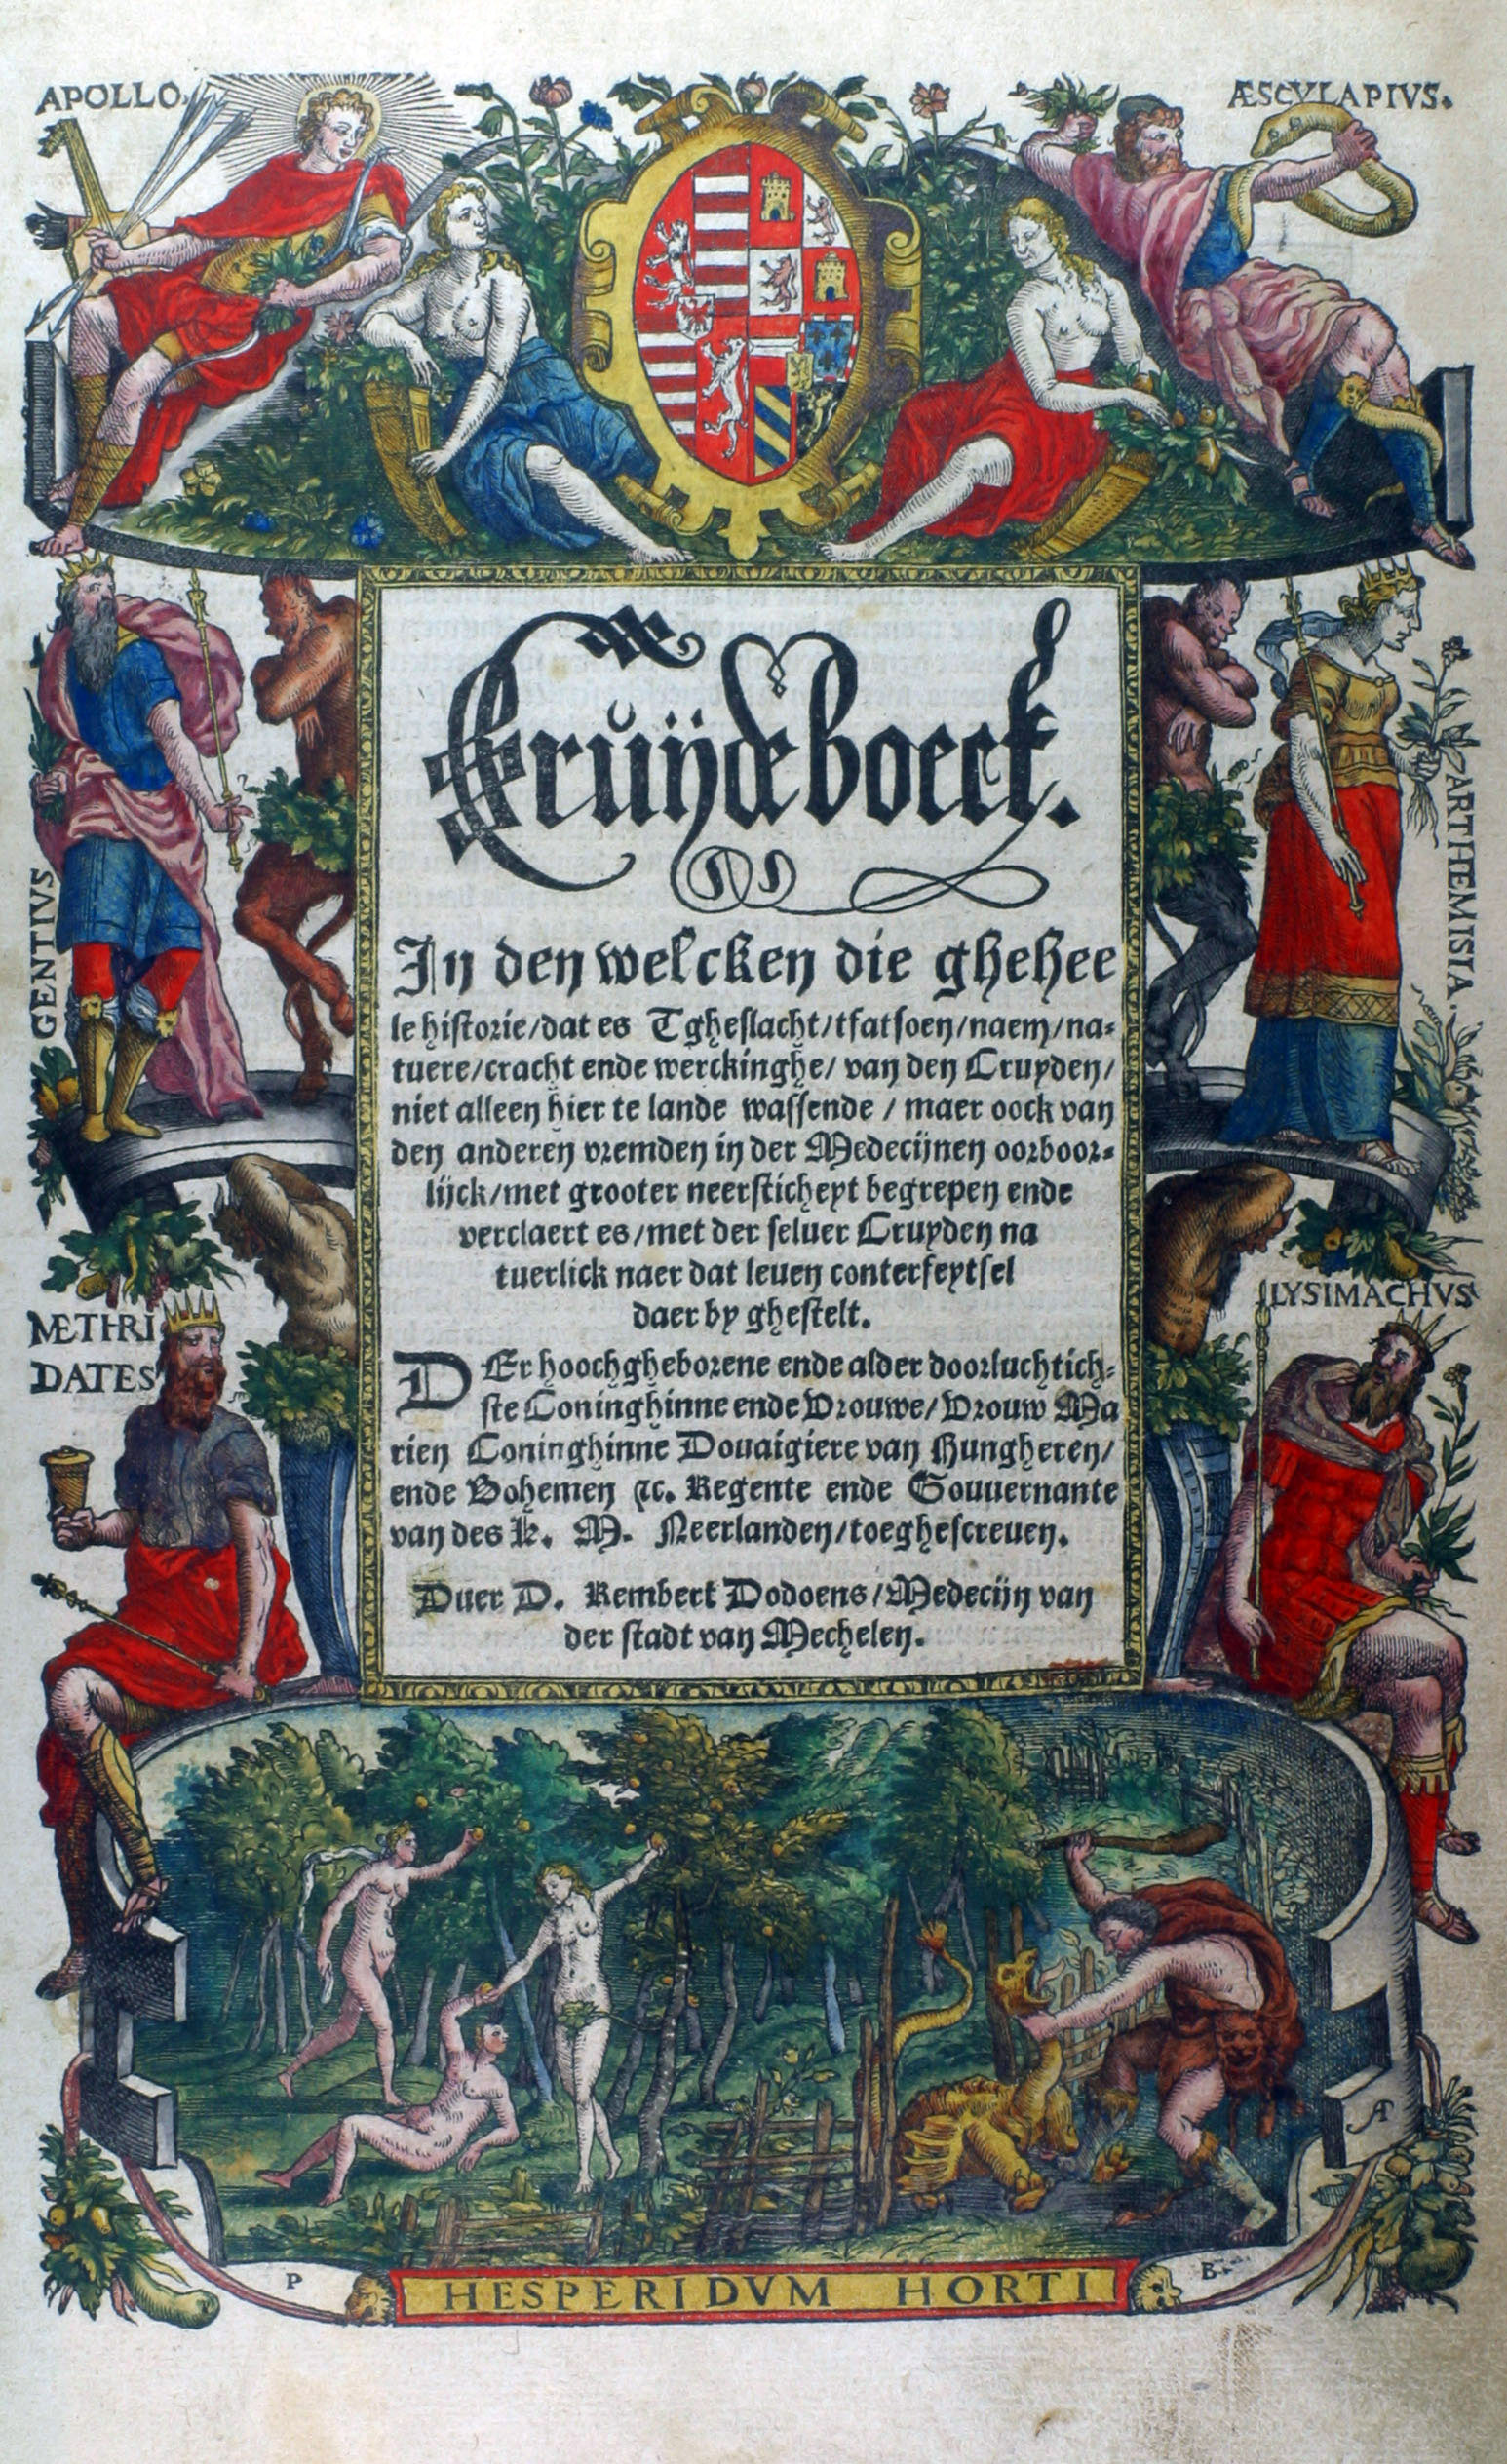 APOLLO.
ÆSCVLAPIVS.
Cruӱdeboeck.
GENTIVS
ARTHEMISIA.
In den welcken die ghehee
le historie/dat es Tgheslacht/tfatsoen/naem/na-
tuere/cracht ende werckinghe/ van den Cruyden/
niet alleen hier te lande wassende / maer oock van
den anderen vremden in der Medecijnen oorboor-
lijck/met grooter neersticheyt begrepen ende
verclaert es/met der seluer Cruyden na
tuerlick naer dat leuen conterfeytsel
daer by ghestelt.
METHRI
DATES
LYSIMACHVS
DEr hoochgheborene ende alder doorluchtich-
ste Coninghinne ende Vrouwe/Vrouw Ma
rien Coninghinne Douaigiere van Hungheren/
ende Bohemen ꝛc. Regente ende Gouuernante
van des K. M. Neerlanden/toeghescreuen.
Duer D. Rembert Dodoens/Medecijn van
der stadt van Mechelen.
A
P
B
HESPERIDVM HORTI